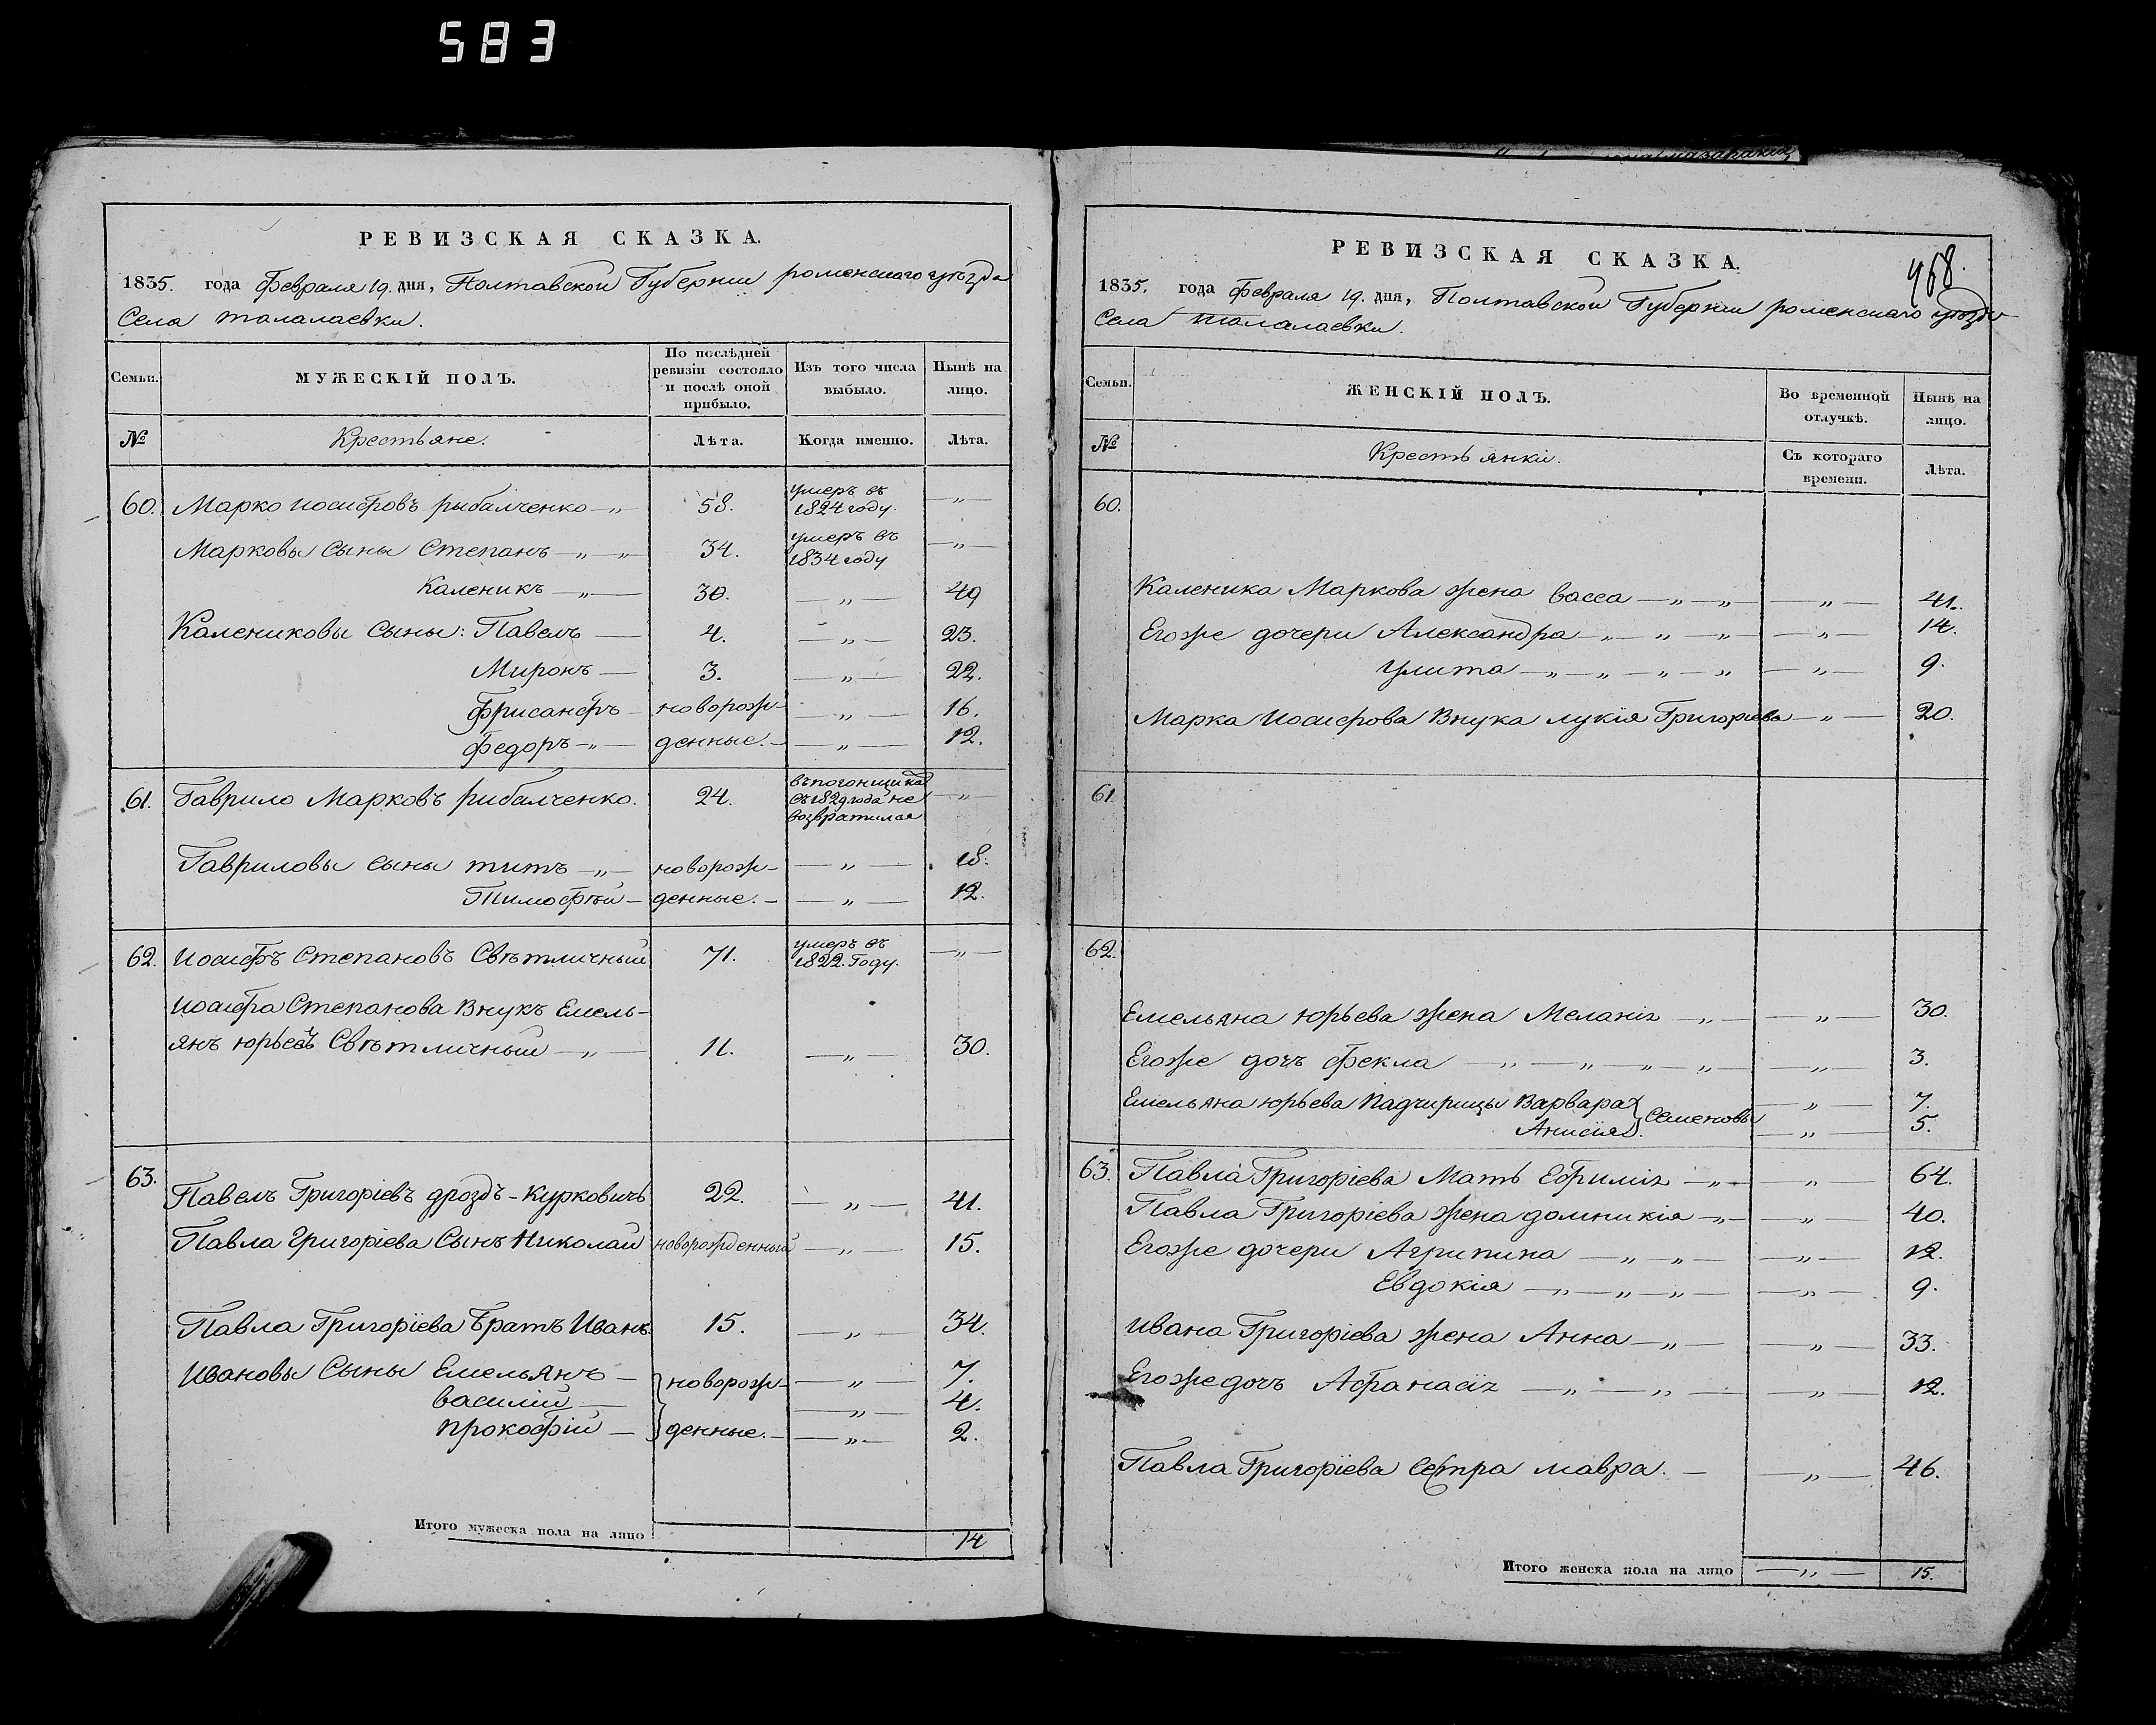 583
РЕВИЗСКАЯ СКАЗКА.
1835. года Февраля 19. дня, Полтавской Губернии роменскаго уѣзда
Села талалаевки.
Семьи.
МУЖЕСКІЙ ПОЛЪ.
По послѣдней
ревизіи состояло
и послѣ оной
прибыло.
Изъ того числа
выбыло.
Нынѣ на
лицо.
№
Крестьяне.
Лѣта.
Когда именно.
Лѣта.
60. Марко иосифовъ рыбалченко —„— 58. умеръ въ 1824 году. —„—
Марковы сыны Степанъ —„—„— 34. умеръ въ 1834 году —„—
Каленикъ —„— 30. —„— 49
Калениковы сыны: Павелъ — 4. —„— 23.
Миронъ — 3. —„— 22.
Фрисанфъ — новорож- —„— 16.
федоръ —„— денные. — —„— 12.
61. Гаврило Марковъ рибалченко. 24. въ погонщика съ 1829 года не возвратился —„—
Гавриловы сыны титъ —„— новорож- —„— 18.
Тимофѣй — денные. — —„— 12.
62. Иосифъ Степановъ Свѣтличный 71. умеръ въ 1822. Году. —„—
Иосифа Степанова Внукъ Емель-
янъ юрьевъ Свѣтличный —„— 11. —„— 30.
63. Павелъ Григоріевъ дроздъ-Курковичъ 22. —„— 41.
Павла Григоріева Сынъ Николай новорожденный —„— 15.
Павла Григоріева Братъ Иванъ. 15. —„— 34.
Ивановы Сыны Емельянъ — новорож- —„— 7.
василій — —„— 4.
прокофій — денные. — —„— 2.
Итого мужеска пола на лицо 14
РЕВИЗСКАЯ СКАЗКА.
468.
1835. года Февраля 19. дня, Полтавской Губернии роменскаго уѣзда
Села талалаевки.
Семьи.
ЖЕНСКІЙ ПОЛЪ.
Во временной
отлучкѣ.
Нынѣ на
лицо.
№
Крестьянкі.
Съ котораго
времени.
Лѣта.
60.
Каленика Маркова жена васса —„—„— —„— 41.
Егоже дочери Александра —„—„—„— —„— 14.
улита —„—„—„—„— —„— 9.
Марка Иосифова Внука лукія Григоріева —„— 20.
61.
62.
Емельяна юрьева жена Меланія —„— —„— 30.
Егоже дочь фекла —„—„—„—„— —„— 3.
Емельяна юрьева Падчирицы Варвара } Семеновы —„— 7.
Анисія —„— 5.
63. Павла Григоріева Мать Ефимія —„— „— 64.
Павла Григоріева жена домникія —„— —„— 40.
Егоже дочери Агрипина —„—„— —„— 12.
Евдокія —„—„—„— —„— 9.
Ивана Григоріева жена Анна —„— —„— 33.
Егоже дочь Афанасія —„—„— —„— 12.
Павла Григоріева Сестра мавра. — —„— 46.
Итого женска пола на лицо —„— 15.